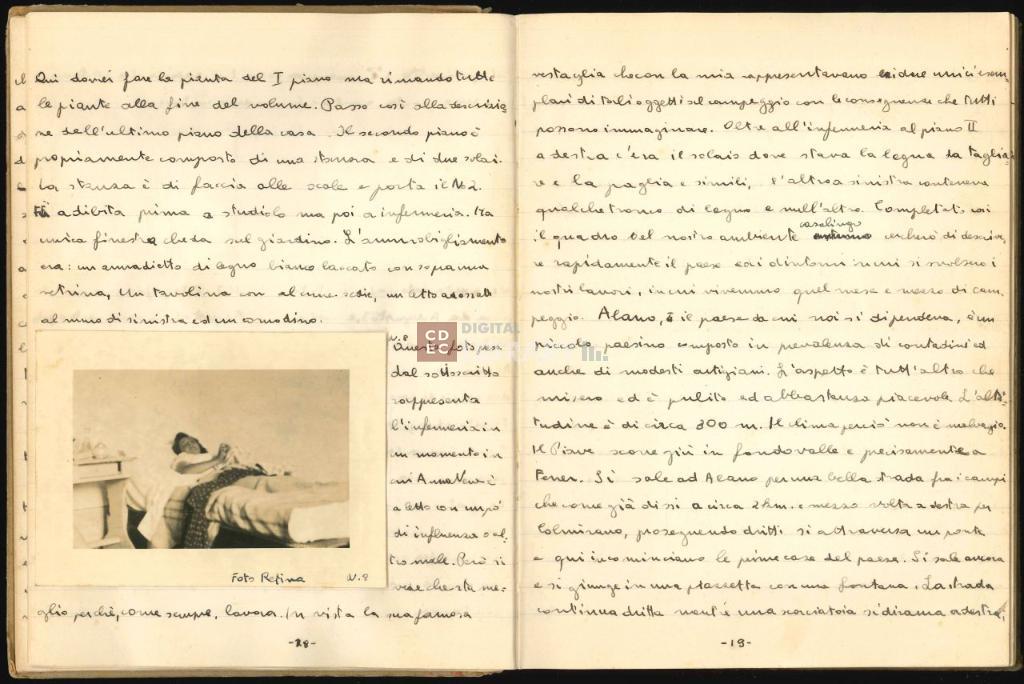 Qui dovrei fare la pianta del I piano ma rimando tutte
le piante alla fine del volume. Passo così alla descrizio-
ne dell'ultimo piano della casa. Il secondo piano è
propriamente composto di una stanza e di due solai.
La stanza è di faccia alle scale e porta il N 2.
Fu adibita prima a studiolo ma poi a infermeria. Ha
unica finestra che da sul giardino. L'ammobigliamento
era: un armadietto di legno bianco laccato con sopra una
vetrina, un tavolino con alcune sedie, un letto adossato
al muro di sinistra ed un comodino.
N. 8
Questa foto presa
dal sottoscritto
rappresenta
l'infermeria in
un momento in
cui Anna Vera è
a letto con un pò
di influenza o al-
tro male. Però si
vede che sta me-
Foto Retina N. 8
glio perchè, come sempre, lavora. In vista la sua famosa
-18-
vestaglia che con la mia rappresentavano i due unici esem-
plari di tali oggetti al campeggio con le conseguenze che tutti
possono immaginare. Oltre all'infermeria al piano II
a destra c'era il solaio dove stava la legna da taglia-
re e la paglia e simili, l'altro a sinistra conteneva
qualche tronco di legno e null'altro. Completato così
casalingo
il quadro del nostro ambiente cercherò di descrive-
re rapidamente il paese ed i dintorni in cui si svolsero i
nostri lavori, in cui vivemmo quel mese e mezzo di cam-
peggio. Alano, è il paese da cui noi si dipendeva, è un
piccolo paesino composto in prevalenza di contadini ed
anche di modesti artigiani. L'aspetto è tutt'altro che
misero ed è pulito ed abbastanza piacevole. L'alti-
tudine è di circa 300 m. Il clima perciò non è malvagio.
Il Piave scorre giù in fondovalle e precisamente a
Fener. Si sale ad Alano per una bella strada fra i campi
che come già dissi a circa 2 km. e mezzo volta a destra per
Colmirano, proseguendo dritti si attraversa un ponte
e qui incominciano le prime case del paese. Si sale ancora
e si giunge in una piazzetta con una fontana. La strada
continua dritta ment'è una scorciatoia si dirama a destra,
-19-
CDEC DIGITAL LIBRARY